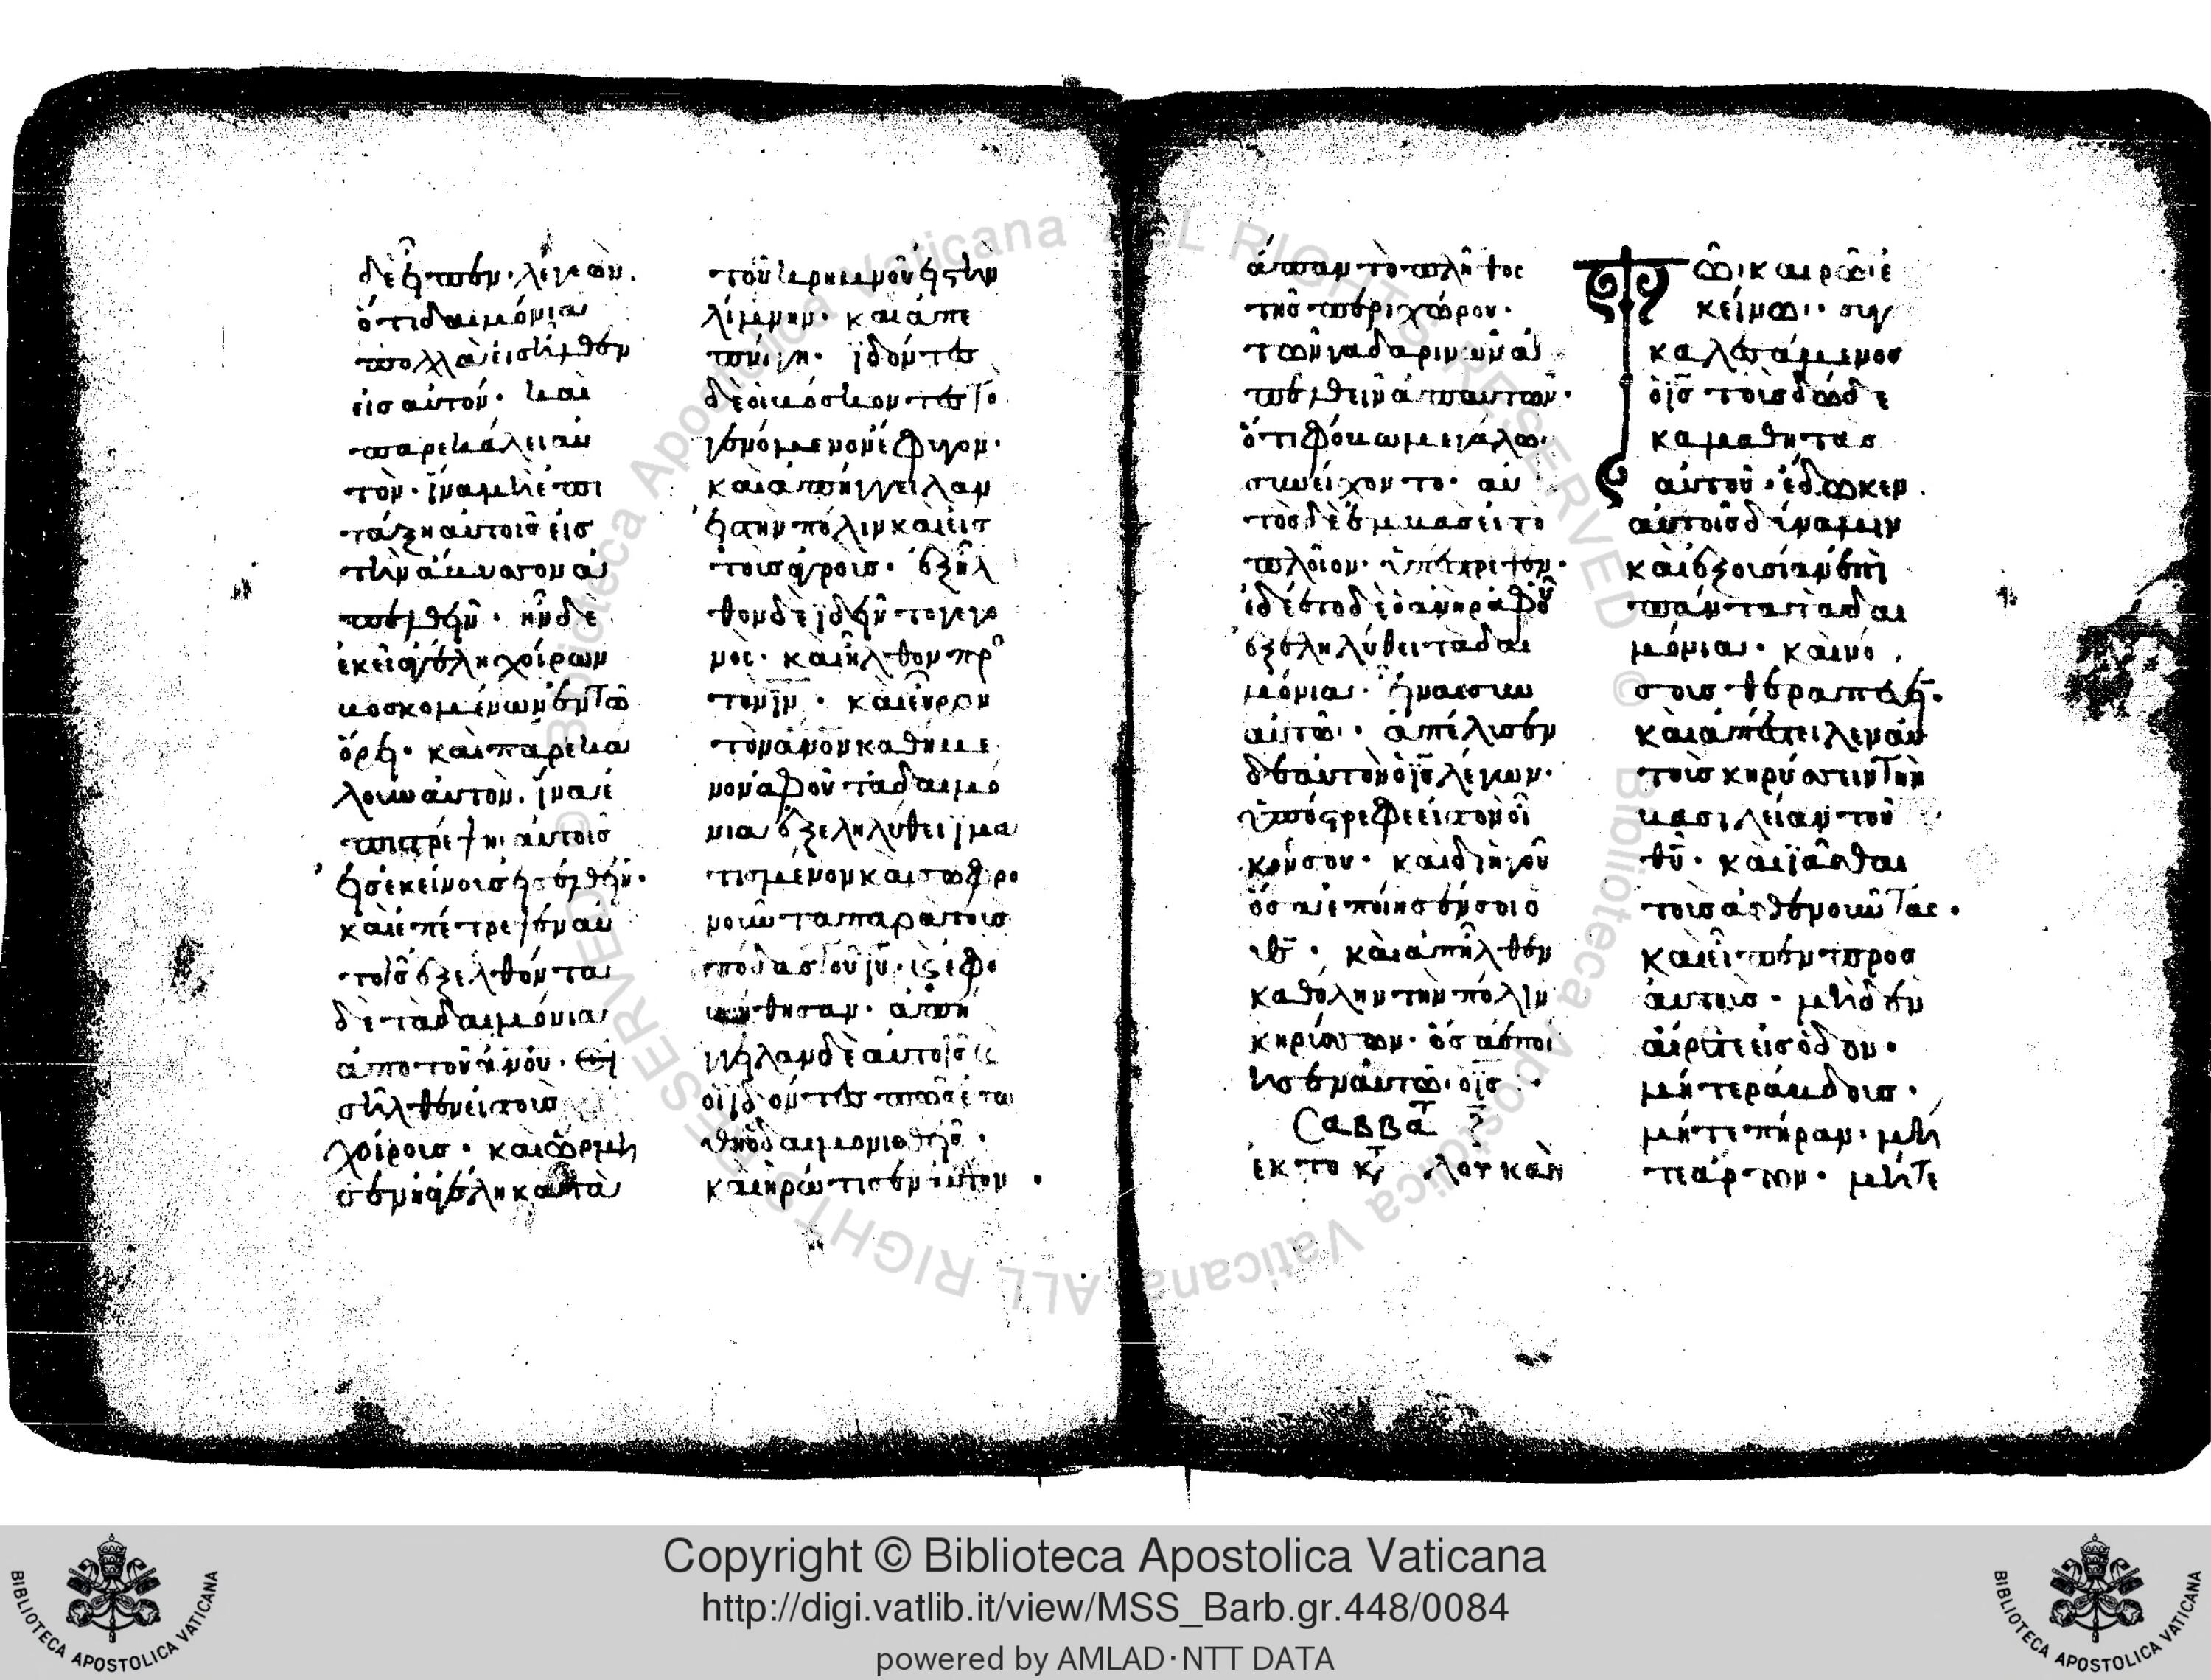 δὲ εἶπεν· λεγεών.
ὅτι δαιμόνια
πολλὰ εἰσῆλθεν
εἰς αὐτόν· καὶ
παρεκάλει αὐ
τὸν· ἵνα μὴ ἐπι
τάξη αὐτοῖς εἰς
τὴν ἄβυσσον ἀ
πελθεῖν· ἦν δὲ
ἐκεῖ ἀγέλη χοίρων
βοσκομένων ἐν τῶ
ὄρει· καὶ παρεκά
λουν αὐτὸν· ἵνα ἐ
πιτρέψη αὐτοῖς
εἰς ἐκείνοις εἰσελθεῖν·
καὶ ἐπέτρεψεν αὐ
τοῖς ἐξελθόντα
δὲ τὰ δαιμόνια
ἀπὸ τοῦ ἀνου·
σῆλθον εἰς τοὺς
χοίρους· καὶ ὥρμη
σεν ἡ ἀγέλη κατὰ
τοῦ κρημνοῦ εἰς τὴν
λίμνην· καὶ ἀπε
πνίγη· ἰδόντες
δὲ οἱ βόσκοντες τὸ
γενόμενον ἔφυγον·
καὶ ἀπήγγειλαν
εἰς τὴν πόλιν καὶ εἰς
τοὺς ἀγρούς· ἐξῆλ
θον δὲ ἰδεῖν τὸ γεγο
νος· καὶ ἦλθον πρὸ
τὸν ιν· καὶ εὗρον
τὸν ανον καθήμε
νον ἀφ' οὗ τὰ δαιμό
νια ἐξεληλύθει ἱμα
τισμένον καὶ σωφρο
νοῦντα παρὰ τοὺς
πόδας τοῦ ιυ·
θησαν· ἀπή
γγειλαν δὲ αὐτοῖς
οἱ ἰδόντες πῶς ἐσώ
θη ὁ δαιμονισθείς·
καὶ ἠρώτησεν αὐτὸν
ἅπαν τὸ πλῆθος
τῆς περιχώρου·
τῶν γαδαρινῶν ἀ
πελθεῖν ἀπ' αὐτῶν·
ὅτι φόβω μεγάλω·
συνείχοντο· αὐ
τὸς δὲ ἐμβὰς εἰς τὸ
πλοῖον· ὑπέστρεψεν·
ἐδέετο δὲ ὁ ἀνὴρ ἀφ' οὗ
ἐξεληλύθει τὰ δαι
μόνια· εἶναι σὺν
αὐτῶ· ἀπέλυσεν
δὲ αὐτὸν ὁ ις λέγων·
ὑπόστρεφε εἰς τὸν οἶ
κόν σου· καὶ διηγοῦ
ὅσα ἐποίησέν σοι ὁ
θς· καὶ ἀπῆλθεν
καθ' ὅλην τὴν πόλιν
κηρύσσων· ὅσα ἐποί
ησεν αὐτῶ ὁ ις
Σαββάτ
ἐκ τοῦ κτ λουκὰν
Τῶι καιρῶι ἐ
κείνωι· συγ
καλεσάμενος
ὁ ις τοὺς δώδε
κα μαθητὰς
αὐτοῦ· ἔδωκεν
αὐτοῖς δύναμιν
καὶ ἐξουσίαν ἐπὶ
πάντα τὰ δαι
μόνια· καὶ νό
σους θεραπεύειν·
καὶ ἀπέστειλεν αὐ
τοὺς κηρύσσειν τὴν
βασιλείαν τοῦ
θυ· καὶ ἰᾶσθαι
τοὺς ἀσθενοῦντας·
καὶ εἶπεν πρὸς
αὐτούς· μηδὲν
αἴρετε εἰς ὁδόν·
μήτε ράβδους·
μήτε πήραν· μή
τε ἄρτον· μήτε
Copyright © Biblioteca Apostolica Vaticana
http://digi.vatlib.it/view/MSS_Barb.gr.448/0084
powered by AMLAD·NTT DATA
BIBLIOTECA APOSTOLICA VATICANA
BIBLIOTECA APOSTOLICA VATICANA